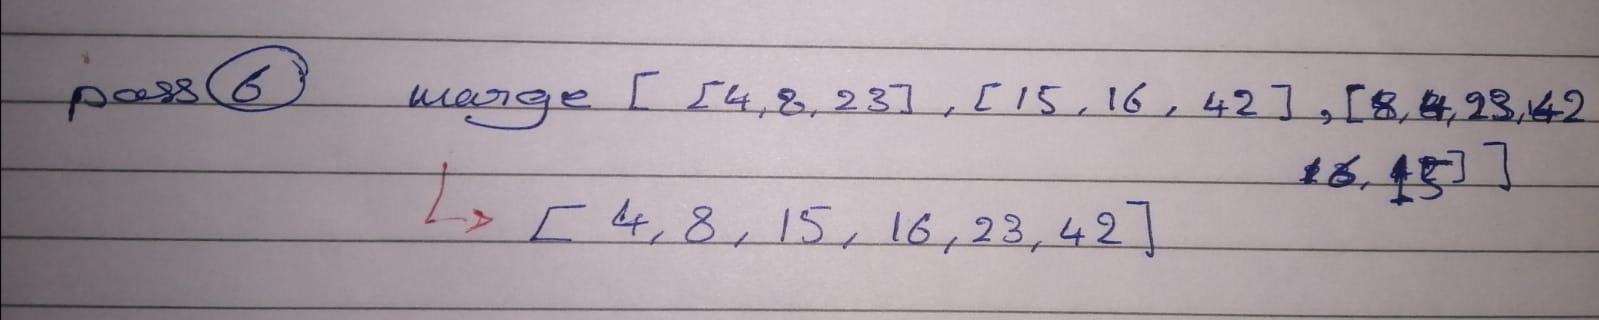 pass 6 marge [ [4,8,23] , [15,16,42] , [8,4,23,42
16,15] ]
[4,8,15,16,23,42]